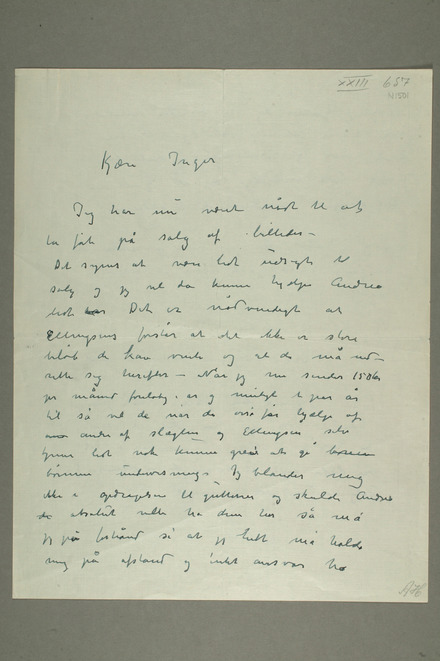 XXIII 687
Kjære Inger
Jeg har nu været nødt til at
ta fat på salg af billeder –
Det synes at være lidt udsigt til
salg og jeg vil da kunne hjælpe Andrea
lidt Det er nødvendigt at
Ellingsens forstår at det ikke er store
beløb de kan vente og at de må ind-
rette sig derefter – Når jeg nu sender 150 kr
per måned foreløbig og muligt et par år
til så vil de når de også får hjælpe af
andre af slægten og Ellingsen selv
tjener lidt nok kunne greie at gi
børnene undervisning – Jeg blander mig
ikke i opdragelsen til guttene og skulde Andrea
absolut ville ha dem her så må
jeg på forhånd si at jeg helt må holde
mig på afstand og intet ansvar ha